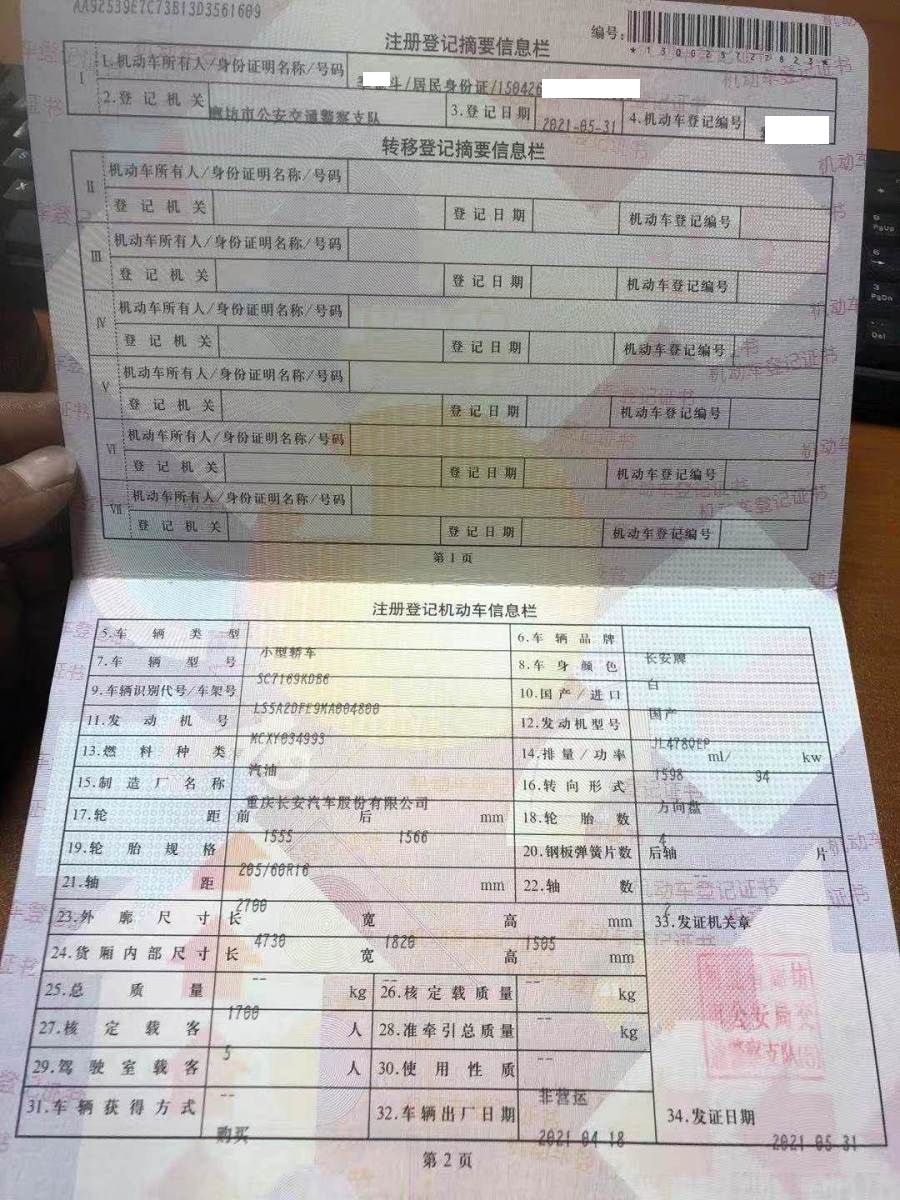 AA92539E7C73B13D3561609
注册登记摘要信息栏
编号:
I
1.机动车所有人/身份证明名称/号码
斗/居民身份证/150426
2.登记机关
廊坊市公安交通警察支队
3.登记日期
2021-05-31
4.机动车登记编号
转移登记摘要信息栏
II
机动车所有人/身份证明名称/号码
登记机关
登记日期
机动车登记编号
III
机动车所有人/身份证明名称/号码
登记机关
登记日期
机动车登记编号
IV
机动车所有人/身份证明名称/号码
登记机关
登记日期
机动车登记编号
V
机动车所有人/身份证明名称/号码
登记机关
登记日期
机动车登记编号
VI
机动车所有人/身份证明名称/号码
登记机关
登记日期
机动车登记编号
VII
机动车所有人/身份证明名称/号码
登记机关
登记日期
机动车登记编号
第1页
注册登记机动车信息栏
5.车辆类型
小型轿车
6.车辆品牌
长安牌
7.车辆型号
SC7169KDB6
8.车身颜色
白
9.车辆识别代号/车架号
LS5A2DFE9MA004800
10.国产/进口
国产
11.发动机号
MCXY034993
12.发动机型号
13.燃料种类
汽油
14.排量/功率
1598 ml/ 94 kw
15.制造厂名称
重庆长安汽车股份有限公司
16.转向形式
方向盘
17.轮距
前 1555 后 1566 mm
18.轮胎数
4
19.轮胎规格
205/60R16
20.钢板弹簧片数
后轴 -- 片
21.轴距
2700 mm
22.轴数
2
23.外廓尺寸
长 4730 宽 1820 高 1505 mm
33.发证机关章
24.货厢内部尺寸
长 -- 宽 -- 高 -- mm
25.总质量
1700 kg
26.核定载质量
-- kg
27.核定载客
5 人
28.准牵引总质量
-- kg
29.驾驶室载客
-- 人
30.使用性质
非营运
31.车辆获得方式
购买
32.车辆出厂日期
2021 04 18
34.发证日期
2021 05 31
第2页